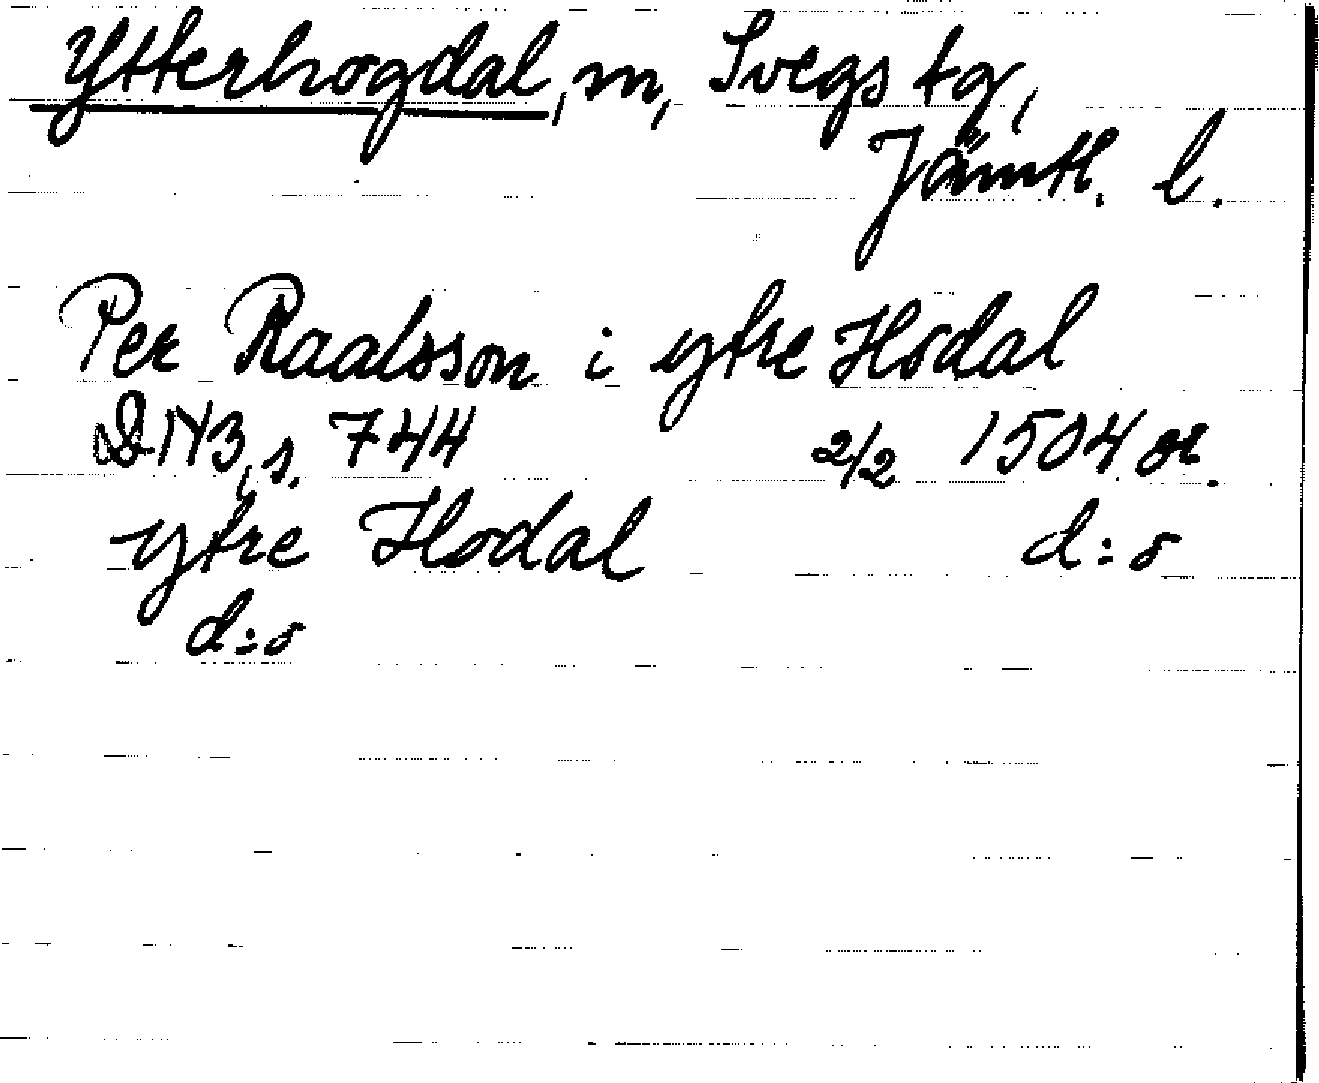 Ytterhogdal, sn, Svegs tg,
Jämtl. l.
Per Raalsson i ytre Hodal
DN3, s. 744 2/2 1504 or.
ytre Hodal d:o
d:o